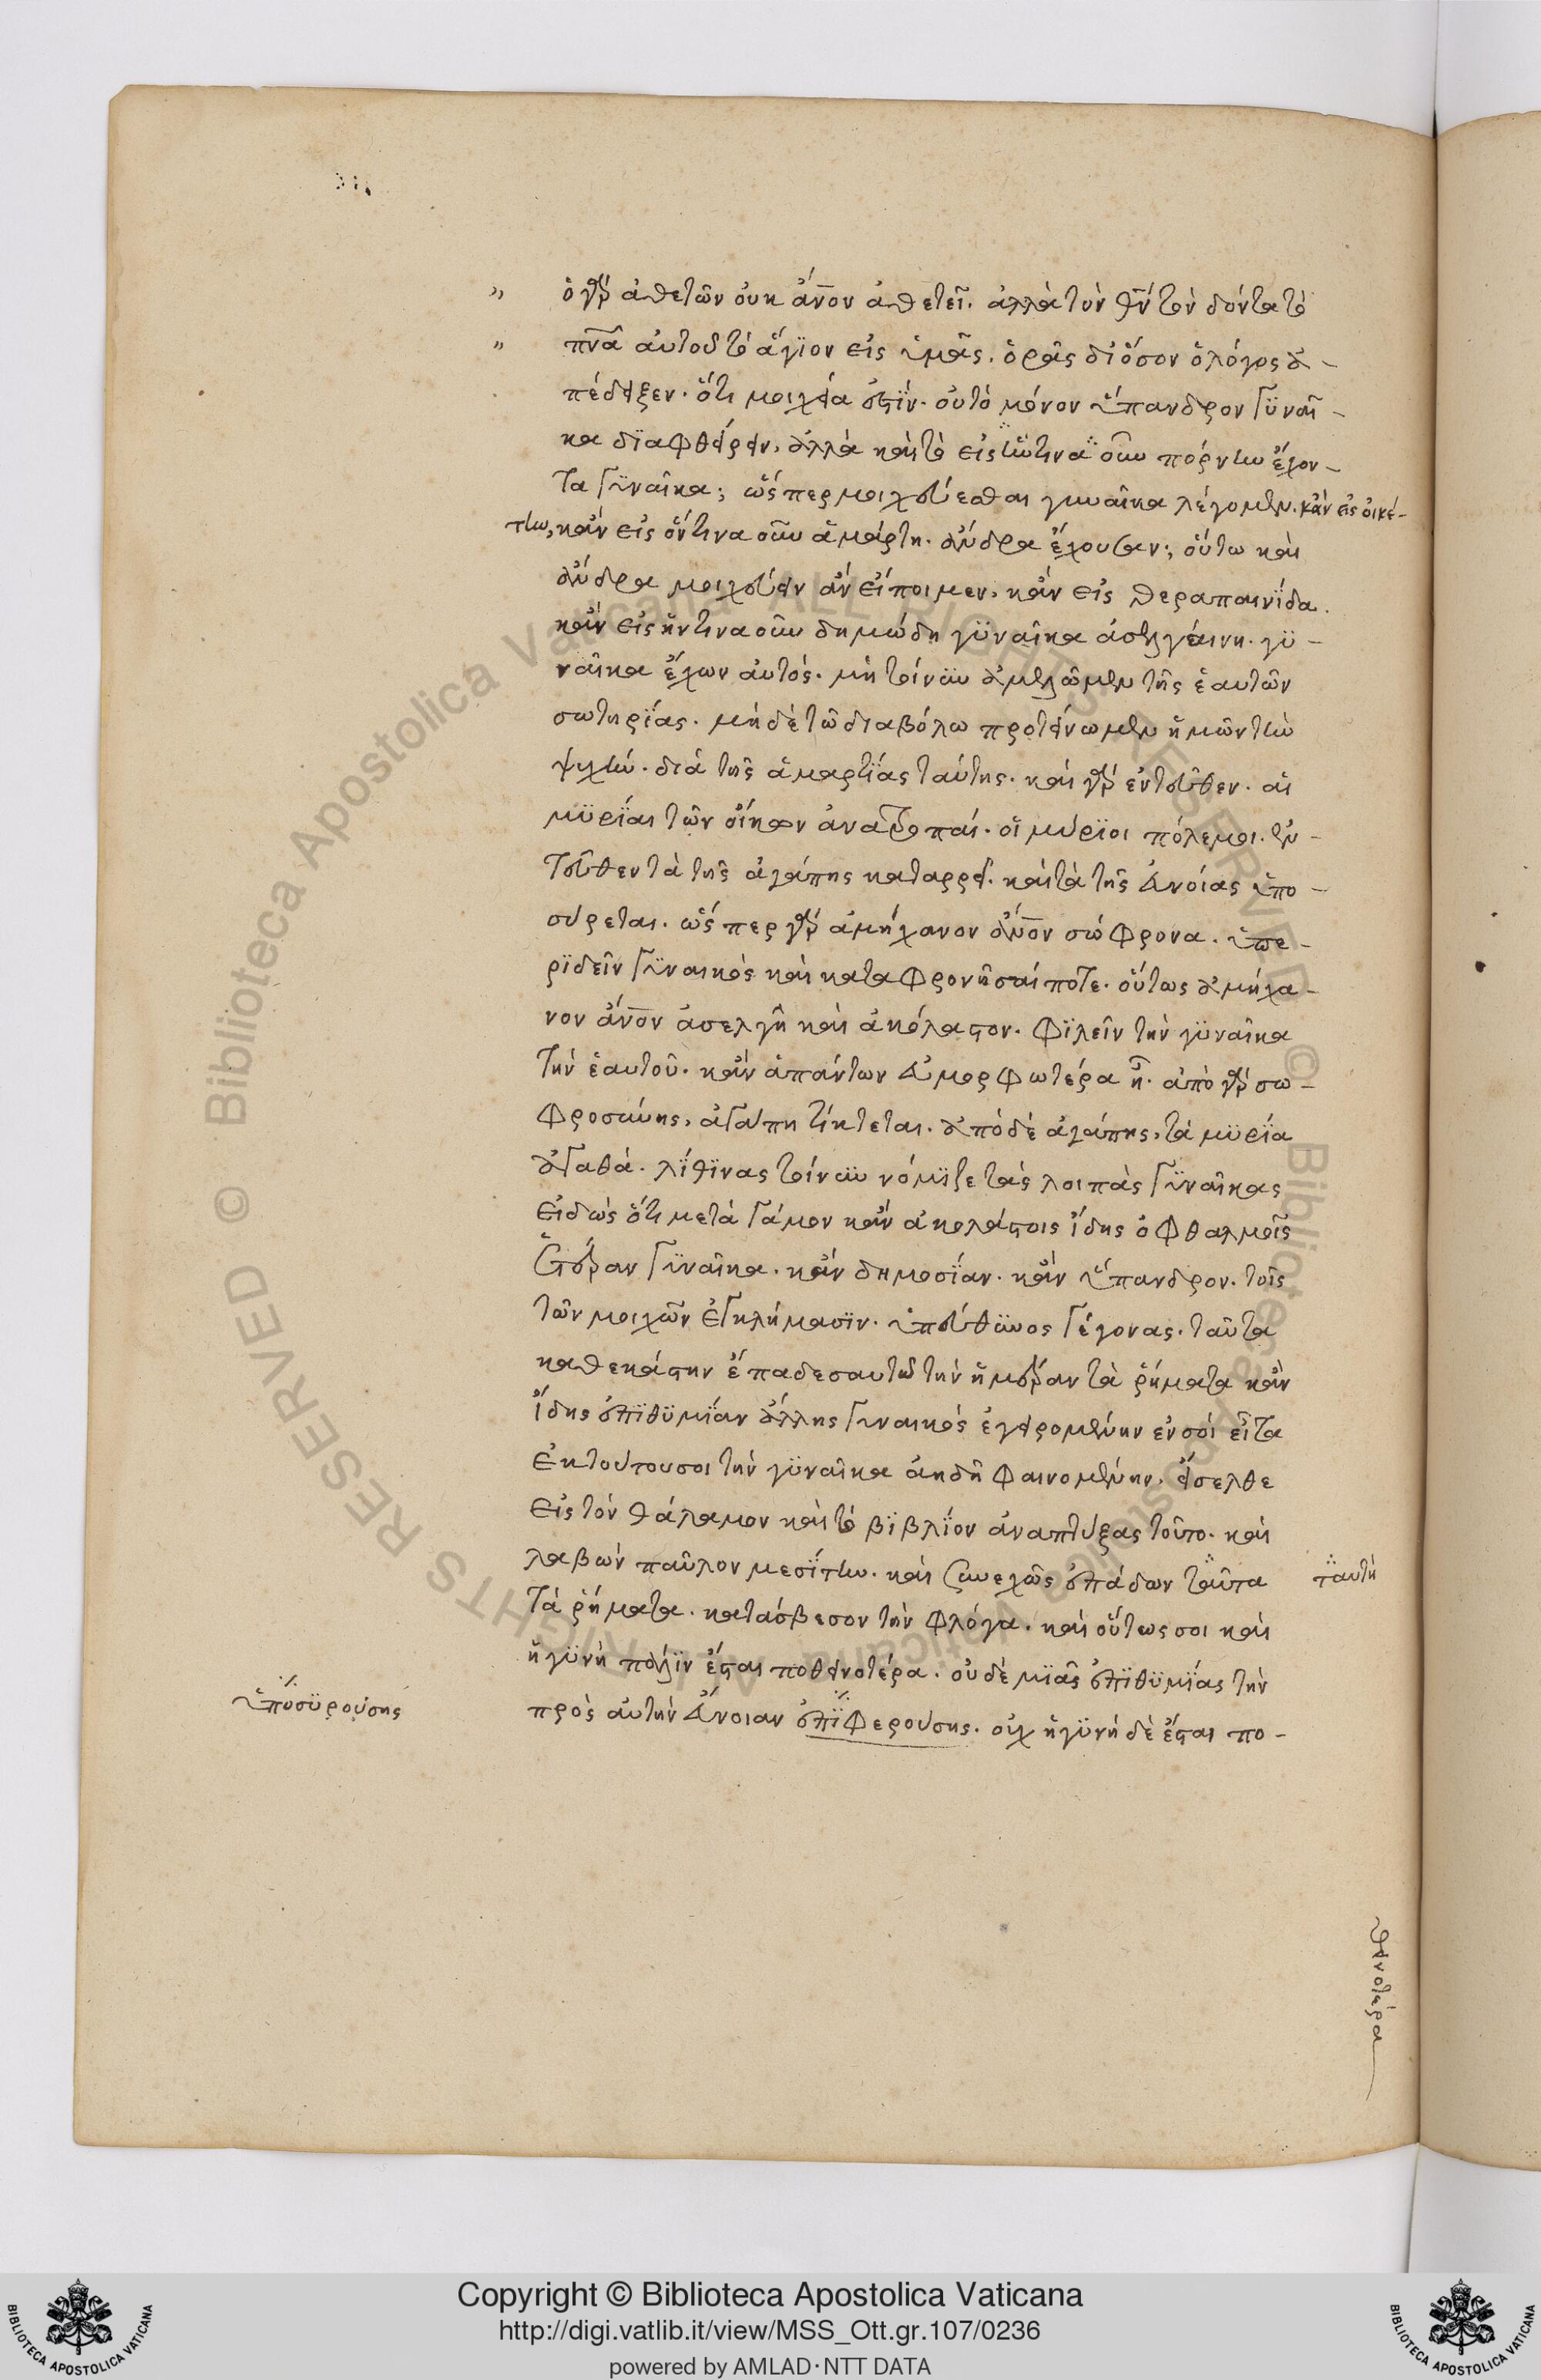 „ ὁ γὰρ ἀθετῶν οὐκ ἄνον ἀθετεῖ. ἀλλὰ τὸν θν̅ τὸν δόντα τὸ
„ πνα αὐτοῦ τὸ ἅγϊον εἰς ὑμᾶς. ὁρᾷς δι ὅσον ὁ λόγος ἀ-
πέδειξεν. ὅτι μοιχεία ἐστϊν. οὐ τὸ μόνον ὕπανδρον γϋναῖ-
κα δϊαφθείρειν, ἀλλὰ καὶ τὸ εἰς ἥντινα οὖν πόρνην ἔχον-
τα γϋναῖκα; ὥσπερ μοιχεύεσθαι γυναῖκα λέγομεν. κἂν εἰς οἰκέ-
την, κἂν εἰς ὅντινα οὖν ἁμάρτη. ἄνδρα ἔχουσαν; οὕτω καὶ
ἄνδρα μοιχεύειν ἂν εἴποιμεν, κἂν εἰς θεραπαινΐδα.
κἂν εἰς ἥντινα οὖν δημώδη γϋναῖκα ἀσελγαίνη. γϋ-
ναῖκα ἔχων αὐτός. μὴ τοίνυν ἀμελῶμεν τῆς ἑαυτῶν
σωτηρΐας. μὴ δὲ τῶ διαβόλω προτείνωμεν ἡμῶν τὴν
ψυχήν. διὰ τῆς ἁμαρτΐας ταύτης. καὶ γὰρ ἐντεῦθεν. αἱ
μϋρΐαι τῶν οἴκων ἀνατροπαί. οἱ μύρϊοι πόλεμοι. ἐν-
τεῦθεν τὰ τῆς ἀγάπης καταρρεῖ. καὶ τὰ τῆς εὐνοίας ὑπο-
σύρεται. ὥσπερ γὰρ ἀμήχανον ἄνον σώφρονα. ὑπε-
ρϊδεῖν γϋναικὸς καὶ καταφρονῆσαί ποτε. οὕτως ἀμήχα-
νον ἄνον ἀσελγῆ καὶ ἀκόλαστον. φϊλεῖν τὴν γϋναῖκα
τὴν ἑαυτοῦ. κἂν ἁπάντων εὐμορφωτέρα ἦ. ἀπὸ γὰρ σω-
φροσύνης, ἀγάπη τίκτεται. ἀπὸ δὲ ἀγάπης, τὰ μϋρΐα
ἀγαθά. λϊθΐνας τοίνυν νόμϊζε τὰς λοιπὰς γϋναῖκας
εἰδὼς ὅτι μετὰ γάμον κἂν ἀκολάστοις ἴδης ὀφθαλμοῖς
ἑτέραν γϋναῖκα. κἂν δημοσΐαν. κἂν ὕπανδρον. τοῖς
τῶν μοιχῶν ἐγκλήμασϊν. ὑπεύθϋνος γέγονας. ταῦτα
καθεκάστην ἔπαδε σαυτῶ τὴν ἡμέραν τὰ ῥήματα κἂν
ἴδης ἐπϊθϋμΐαν ἄλλης γυναικὸς ἐγειρομένην ἐν σοί εἶτα
ἐκ τούτου σοι τὴν γϋναῖκα ἀηδῆ φαινομένην, εἴσελθε
εἰς τὸν θάλαμον καὶ τὸ βϊβλΐον ἀναπτύξας τοῦτο. καὶ
λαβὼν παῦλον μεσΐτην. καὶ συνεχῶς ἐπάδων ταῦτα ταυτὴ
τὰ ῥήματα. κατάσβεσον τὴν φλόγα. καὶ οὕτως σοι καὶ
ἡ γϋνὴ πάλϊν ἔσται ποθεινοτέρα. οὐδὲ μϊᾶς ἐπϊθϋμΐας τὴν
ὑποσϋρούσης πρὸς αὐτὴν εὔνοιαν ἐπϊφερούσης. οὐχ ἡ γϋνὴ δὲ ἔσται πο-
θεινοτέρα
Copyright © Biblioteca Apostolica Vaticana
http://digi.vatlib.it/view/MSS_Ott.gr.107/0236
powered by AMLAD·NTT DATA